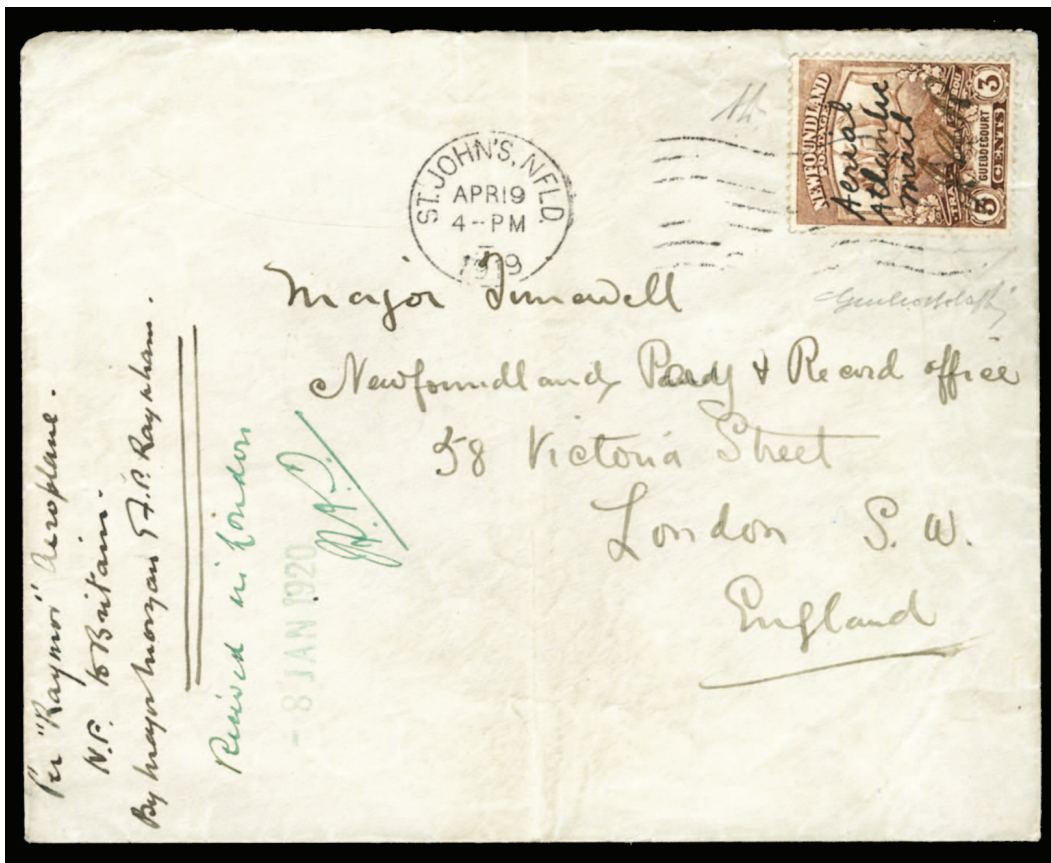 ST. JOHN'S, NFLD.
APR 19
4--PM
1919
NEWFOUNDLAND
POSTAGE
3
3
CENTS
GUEUDECOURT
TRAIL OF THE CARIBOU
Aerial
Atlantic
Mail
Major Timewell
Newfoundland Pay & Record office
58 Victoria Street
London S. W.
England
Per "Raymor" Aeroplane.
N.F. to Britain.
By Major Morgan & F.P. Raynham.
Received in London
- 8 JAN 1920